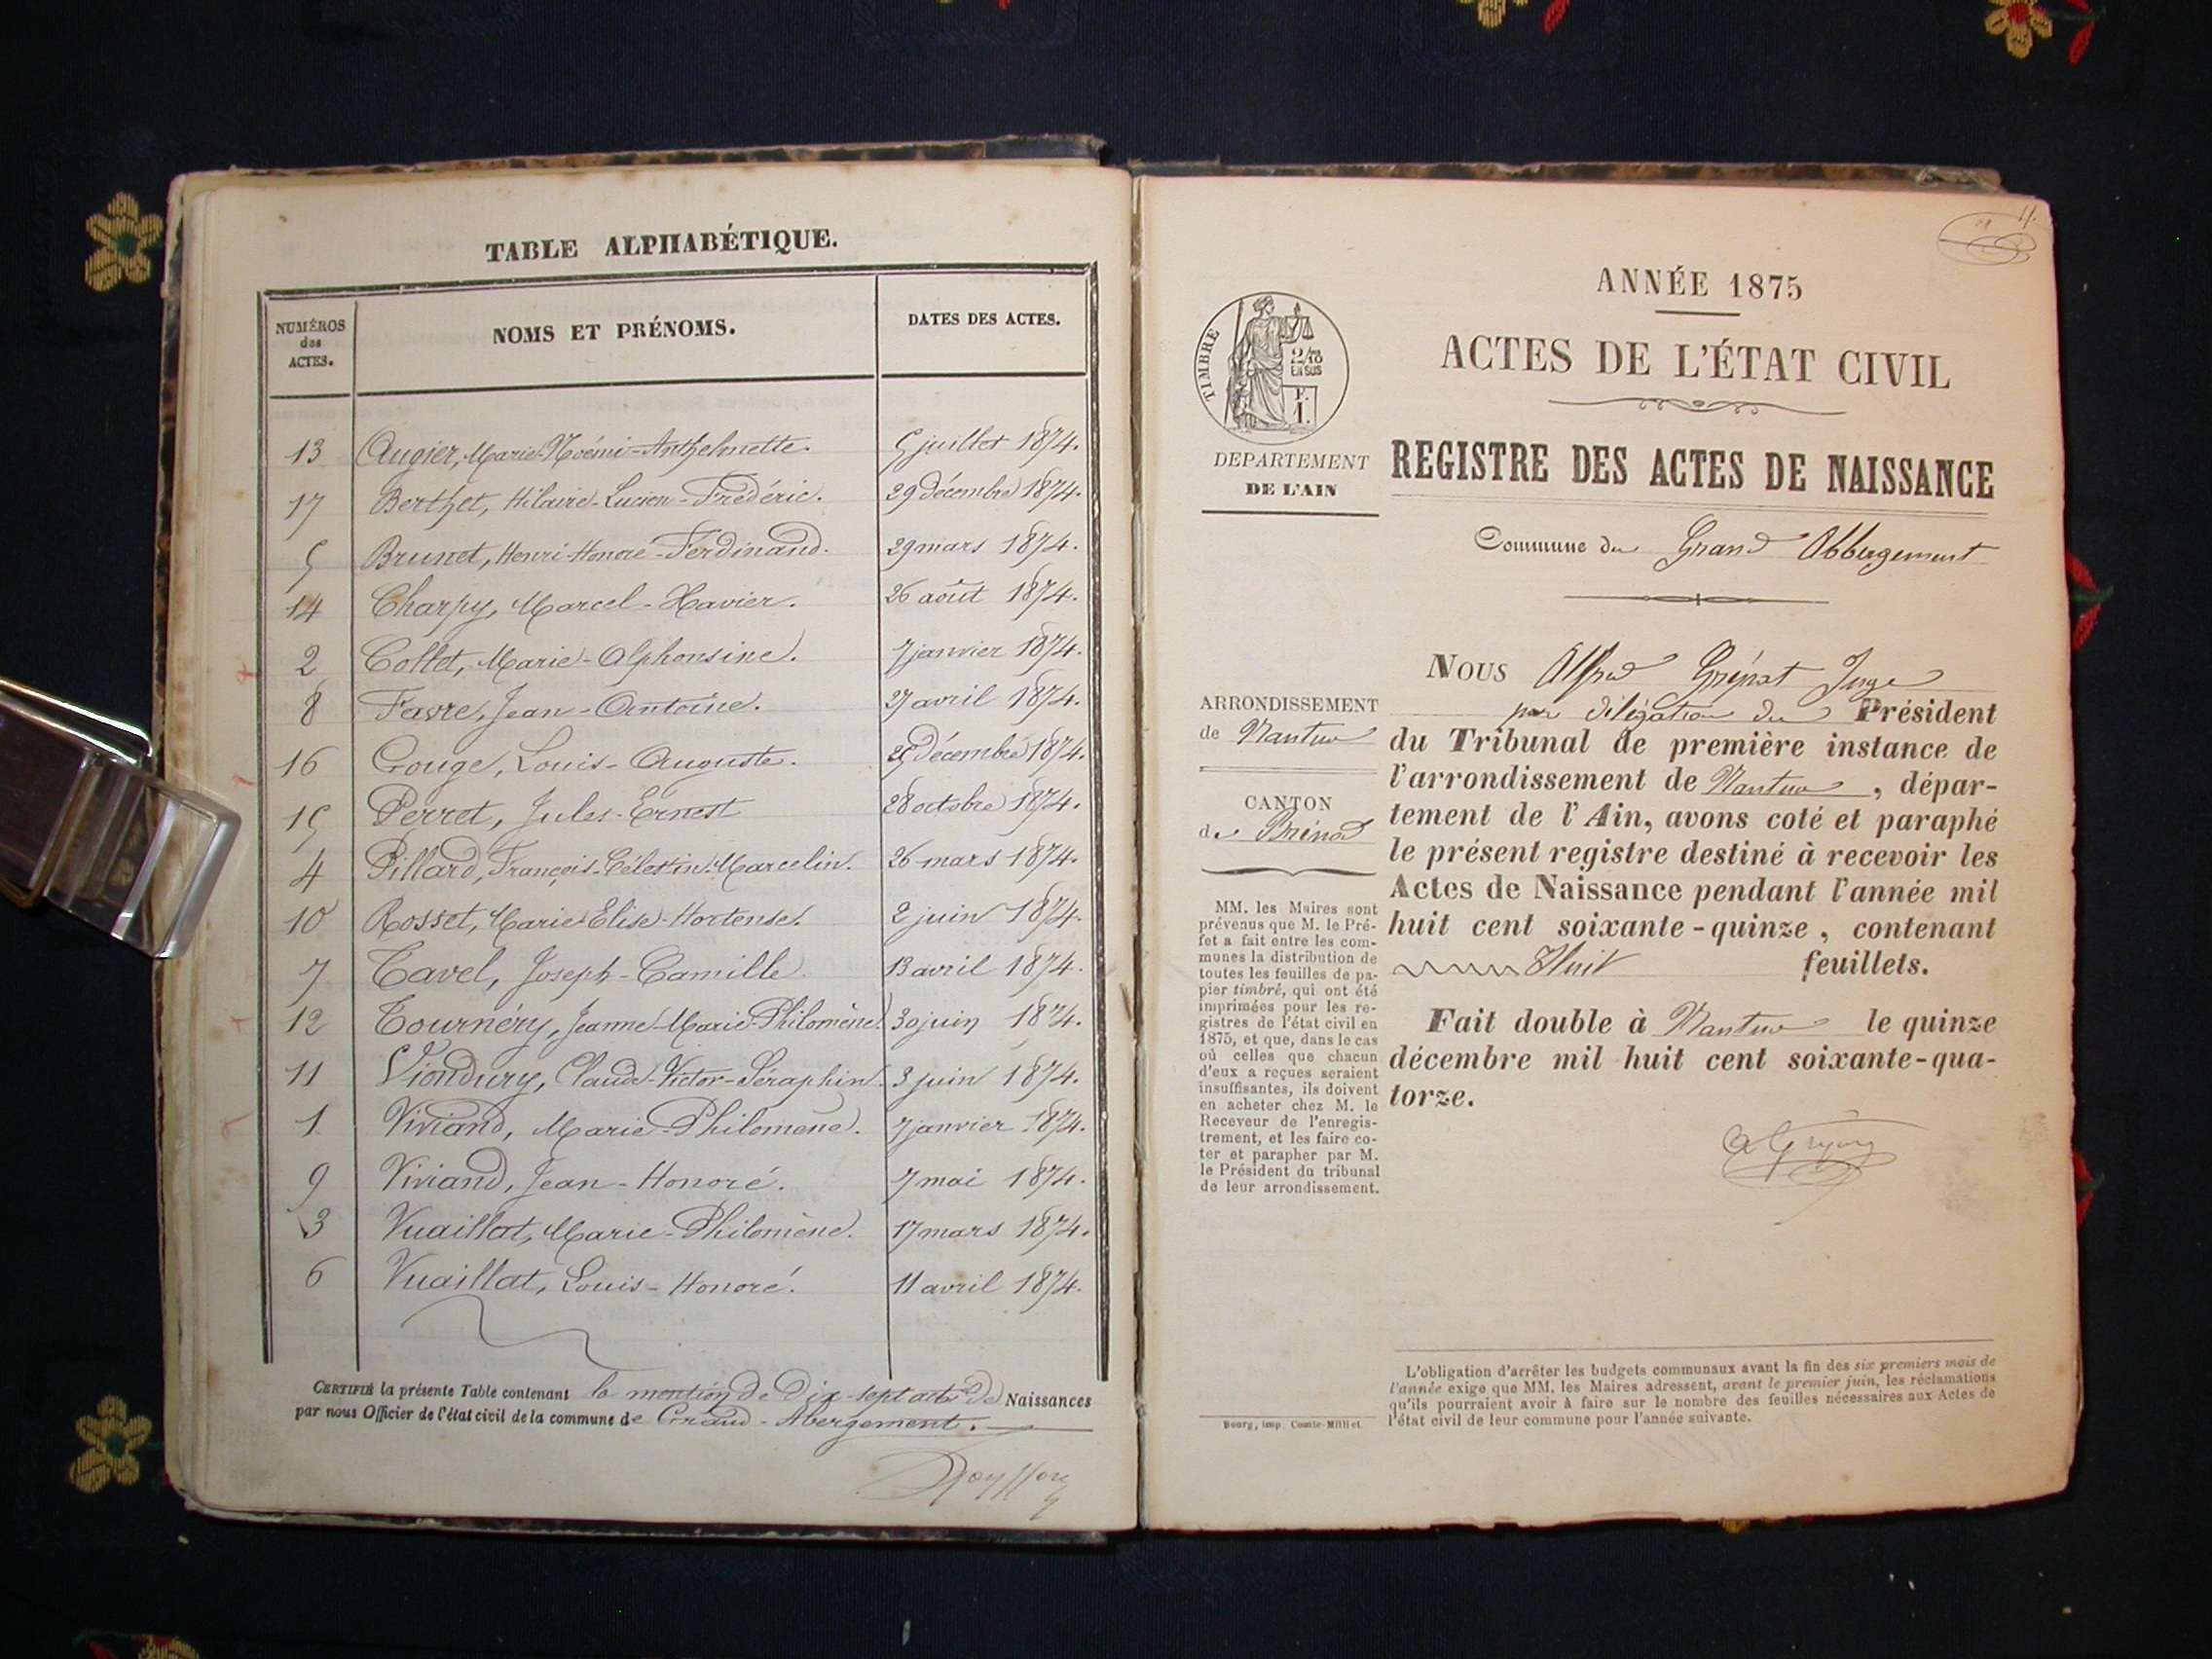 TABLE ALPHABÉTIQUE.
NUMÉROS des ACTES.
NOMS ET PRÉNOMS.
DATES DES ACTES.
13 Augier, Marie-Noémi-Anthelmette. 5 juillet 1874.
17 Berthet, Hilaire-Lucien-Frédéric. 29 décembre 1874.
5 Brunet, Henri-Honoré-Ferdinand. 29 mars 1874.
14 Charpy, Marcel-Xavier. 26 août 1874.
2 Collet, Marie-Alphonsine. 7 janvier 1874.
8 Favre, Jean-Antoine. 27 avril 1874.
16 Gouge, Louis-Auguste. 25 décembre 1874.
15 Perret, Jules-Ernest 28 octobre 1874.
4 Pillard, François-Célestin-Marcelin. 26 mars 1874.
10 Rosset, Marie-Elise-Hortense. 2 juin 1874.
7 Tavel, Joseph-Camille. 13 avril 1874.
12 Tournéry, Jeanne-Marie-Philomène. 30 juin 1874.
11 Viondury, Claude-Victor-Séraphin. 3 juin 1874.
1 Viviand, Marie-Philomène. 7 janvier 1874.
9 Viviand, Jean-Honoré. 7 mai 1874.
3 Vuaillat, Marie-Philomène. 17 mars 1874.
6 Vuaillat, Louis-Honoré. 11 avril 1874.
CERTIFIÉ la présente Table contenant la mention de Dix-sept actes de Naissances
par nous Officier de l'état civil de la commune de Grand-Abergement.
ANNÉE 1875
ACTES DE L'ÉTAT CIVIL
REGISTRE DES ACTES DE NAISSANCE
Commune du Grand Abbergement
TIMBRE
2/10
EN SUS
F.
1.
DEPARTEMENT
DE L'AIN
ARRONDISSEMENT
de Nantua
CANTON
de Brénod
MM. les Maires sont
prévenus que M. le Pré-
fet a fait entre les com-
munes la distribution de
toutes les feuilles de pa-
pier timbré, qui ont été
imprimées pour les re-
gistres de l'état civil en
1875, et que, dans le cas
où celles que chacun
d'eux a reçues seraient
insuffisantes, ils doivent
en acheter chez M. le
Receveur de l'enregis-
trement, et les faire co-
ter et parapher par M.
le Président du tribunal
de leur arrondissement.
NOUS Alfred Grépat Juge
par délégation du Président
du Tribunal de première instance de
l'arrondissement de Nantua, dépar-
tement de l'Ain, avons coté et paraphé
le présent registre destiné à recevoir les
Actes de Naissance pendant l'année mil
huit cent soixante-quinze, contenant
Huit feuillets.
Fait double à Nantua le quinze
décembre mil huit cent soixante-qua-
torze.
L'obligation d'arrêter les budgets communaux avant la fin des six premiers mois de
l'année exige que MM. les Maires adressent, avant le premier juin, les réclamations
qu'ils pourraient avoir à faire sur le nombre des feuilles nécessaires aux Actes de
l'état civil de leur commune pour l'année suivante.
Bourg, imp. Comte-Milliet.